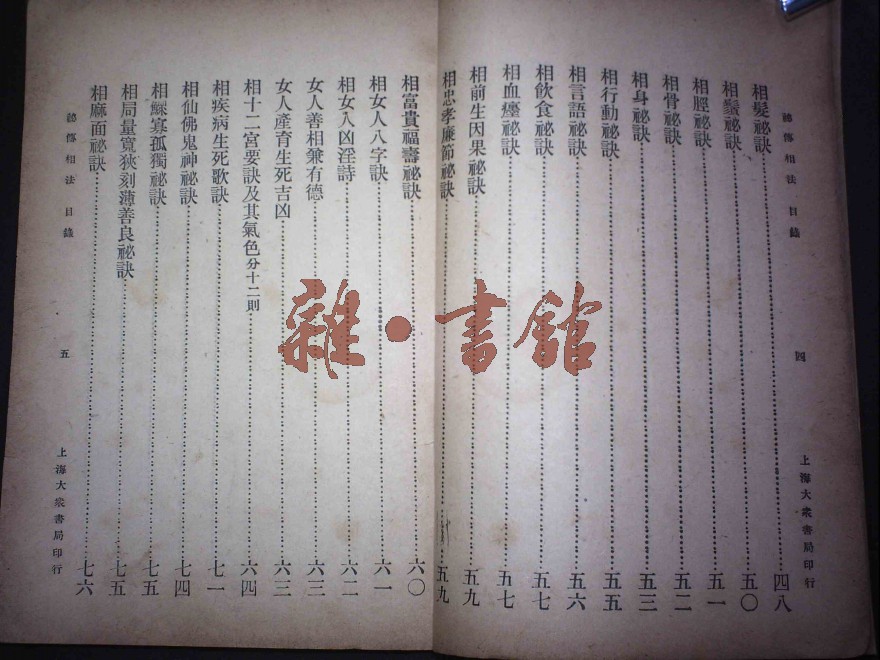 祕傳相法 目錄 四 上海大衆書局印行
相髮祕訣 四八
相鬚祕訣 五〇
相脛祕訣 五一
相骨祕訣 五二
相身祕訣 五三
相行動祕訣 五五
相言語祕訣 五六
相飲食祕訣 五七
相血癦祕訣 五七
相前生因果祕訣 五九
相忠孝廉節祕訣 五九
相富貴福壽祕訣 六〇
相女人八字訣 六一
相女人凶淫詩 六二
女人善相兼有德 六三
女人產育生死吉凶 六三
相十二宮要訣及其氣色分十二則 六四
相疾病生死歌訣 七一
相仙佛鬼神祕訣 七四
相鰥寡孤獨祕訣 七五
相局量寬狹刻薄善良祕訣 七五
相麻面祕訣 七六
祕傳相法 目錄 五 上海大衆書局印行
雜·書館